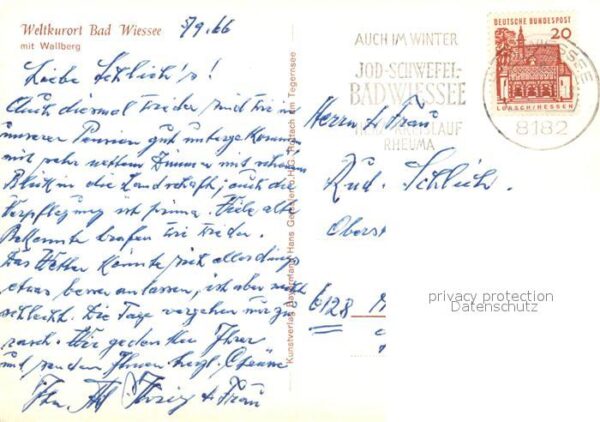 Weltkurort Bad Wiessee
mit Wallberg
5/9.66
Liebe Schlich's!
Auch diesmal wieder sind wir in
unserer Pension gut untergekommen
mit sehr nettem Zimmer mit schönem
Blick in die Landschaft; auch die
Verpflegung ist prima. Viele alte
Bekannte trafen wir wieder.
Das Wetter könnte sich allerdings
etwas besser anlassen, ist aber nicht
schlecht. Die Tage vergehen nur zu
rasch. Wir gedenken Ihrer
und senden Ihnen herzl. Grüsse
Ihr
u. Frau
Kunstverlag Hans H.G. Rottach am Tegernsee
AUCH IM WINTER
JOD-SCHWEFEL-
BAD WIESSEE
HERZ KREISLAUF
RHEUMA
DEUTSCHE BUNDESPOST
20
LORSCH/HESSEN
WIESSEE
8182
Herrn u. Frau
Rud. Schlich.
Oberst
6128
privacy protection
Datenschutz